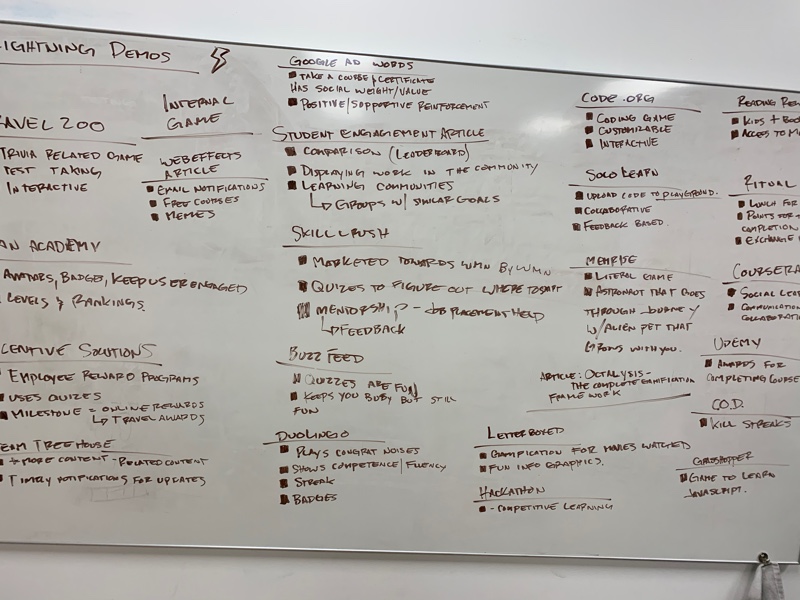 IGHTNING DEMOS
AVEL ZOO
TRIVIA RELATED GAME
TEST TAKING
INTERACTIVE
INTERNAL
GAME
WEBEFFECTS
ARTICLE
EMAIL NOTIFICATIONS
FREE COURSES
MEMES
AN ACADEMY
AVATARS, BADGES, KEEP USER ENGAGED
LEVELS & RANKINGS.
CENTIVE SOLUTIONS
EMPLOYEE REWARD PROGRAMS
USES QUIZES
MILESTONE = ONLINE REWARDS
↳ TRAVEL AWARDS
EAM TREEHOUSE
MORE CONTENT - RELATED CONTENT
TIMELY NOTIFICATIONS FOR UPDATES
GOOGLE AD WORDS
TAKE A COURSE & CERTIFICATE
HAS SOCIAL WEIGHT/VALUE
POSITIVE/SUPPORTIVE REINFORCEMENT
STUDENT ENGAGEMENT ARTICLE
COMPARISON (LEADERBOARD)
DISPLAYING WORK IN THE COMMUNITY
LEARNING COMMUNITIES
↳ GROUPS W/ SIMILAR GOALS
SKILLCRUSH
MARKETED TOWARDS WMN BY WMN
QUIZES TO FIGURE OUT WHERE TO START
MENTORSHIP - JOB PLACEMENT HELP
↳ FEEDBACK
BUZZ FEED
QUIZZES ARE FUN
KEEPS YOU BUSY BUT STILL
FUN
DUOLINGO
PLAYS CONGRAT NOISES
SHOWS COMPETENCE/FLUENCY
STREAK
BADGES
CODE.ORG
CODING GAME
CUSTOMIZABLE
INTERACTIVE
SOLO LEARN
UPLOAD CODE TO PLAYGROUND.
COLLABORATIVE
FEEDBACK BASED.
MEMRISE
LITERAL GAME
ASTRONAUT THAT GOES
THROUGH JOURNEY
W/ ALIEN PET THAT
GROWS WITH YOU.
ARTICLE: OCTALYSIS -
THE COMPLETE GAMIFICATION
FRAMEWORK
LETTERBOXED
GAMIFICATION FOR MOVIES WATCHED
FUN INFO GRAPHICS.
HACKATHON
- COMPETITIVE LEARNING
READING
KIDS + BOO
ACCESS TO
RITUAL
LUNCH FOR
POINTS FOR
COMPLETION
EXCHANGE
COURSERA
SOCIAL LEA
COMMUNICATION
COLLABORATI
UDEMY
AWARDS FOR
COMPLETING COURSE
C.O.D.
KILL STREAKS
GRASSHOPPER
GAME TO LEARN
JAVASCRIPT.